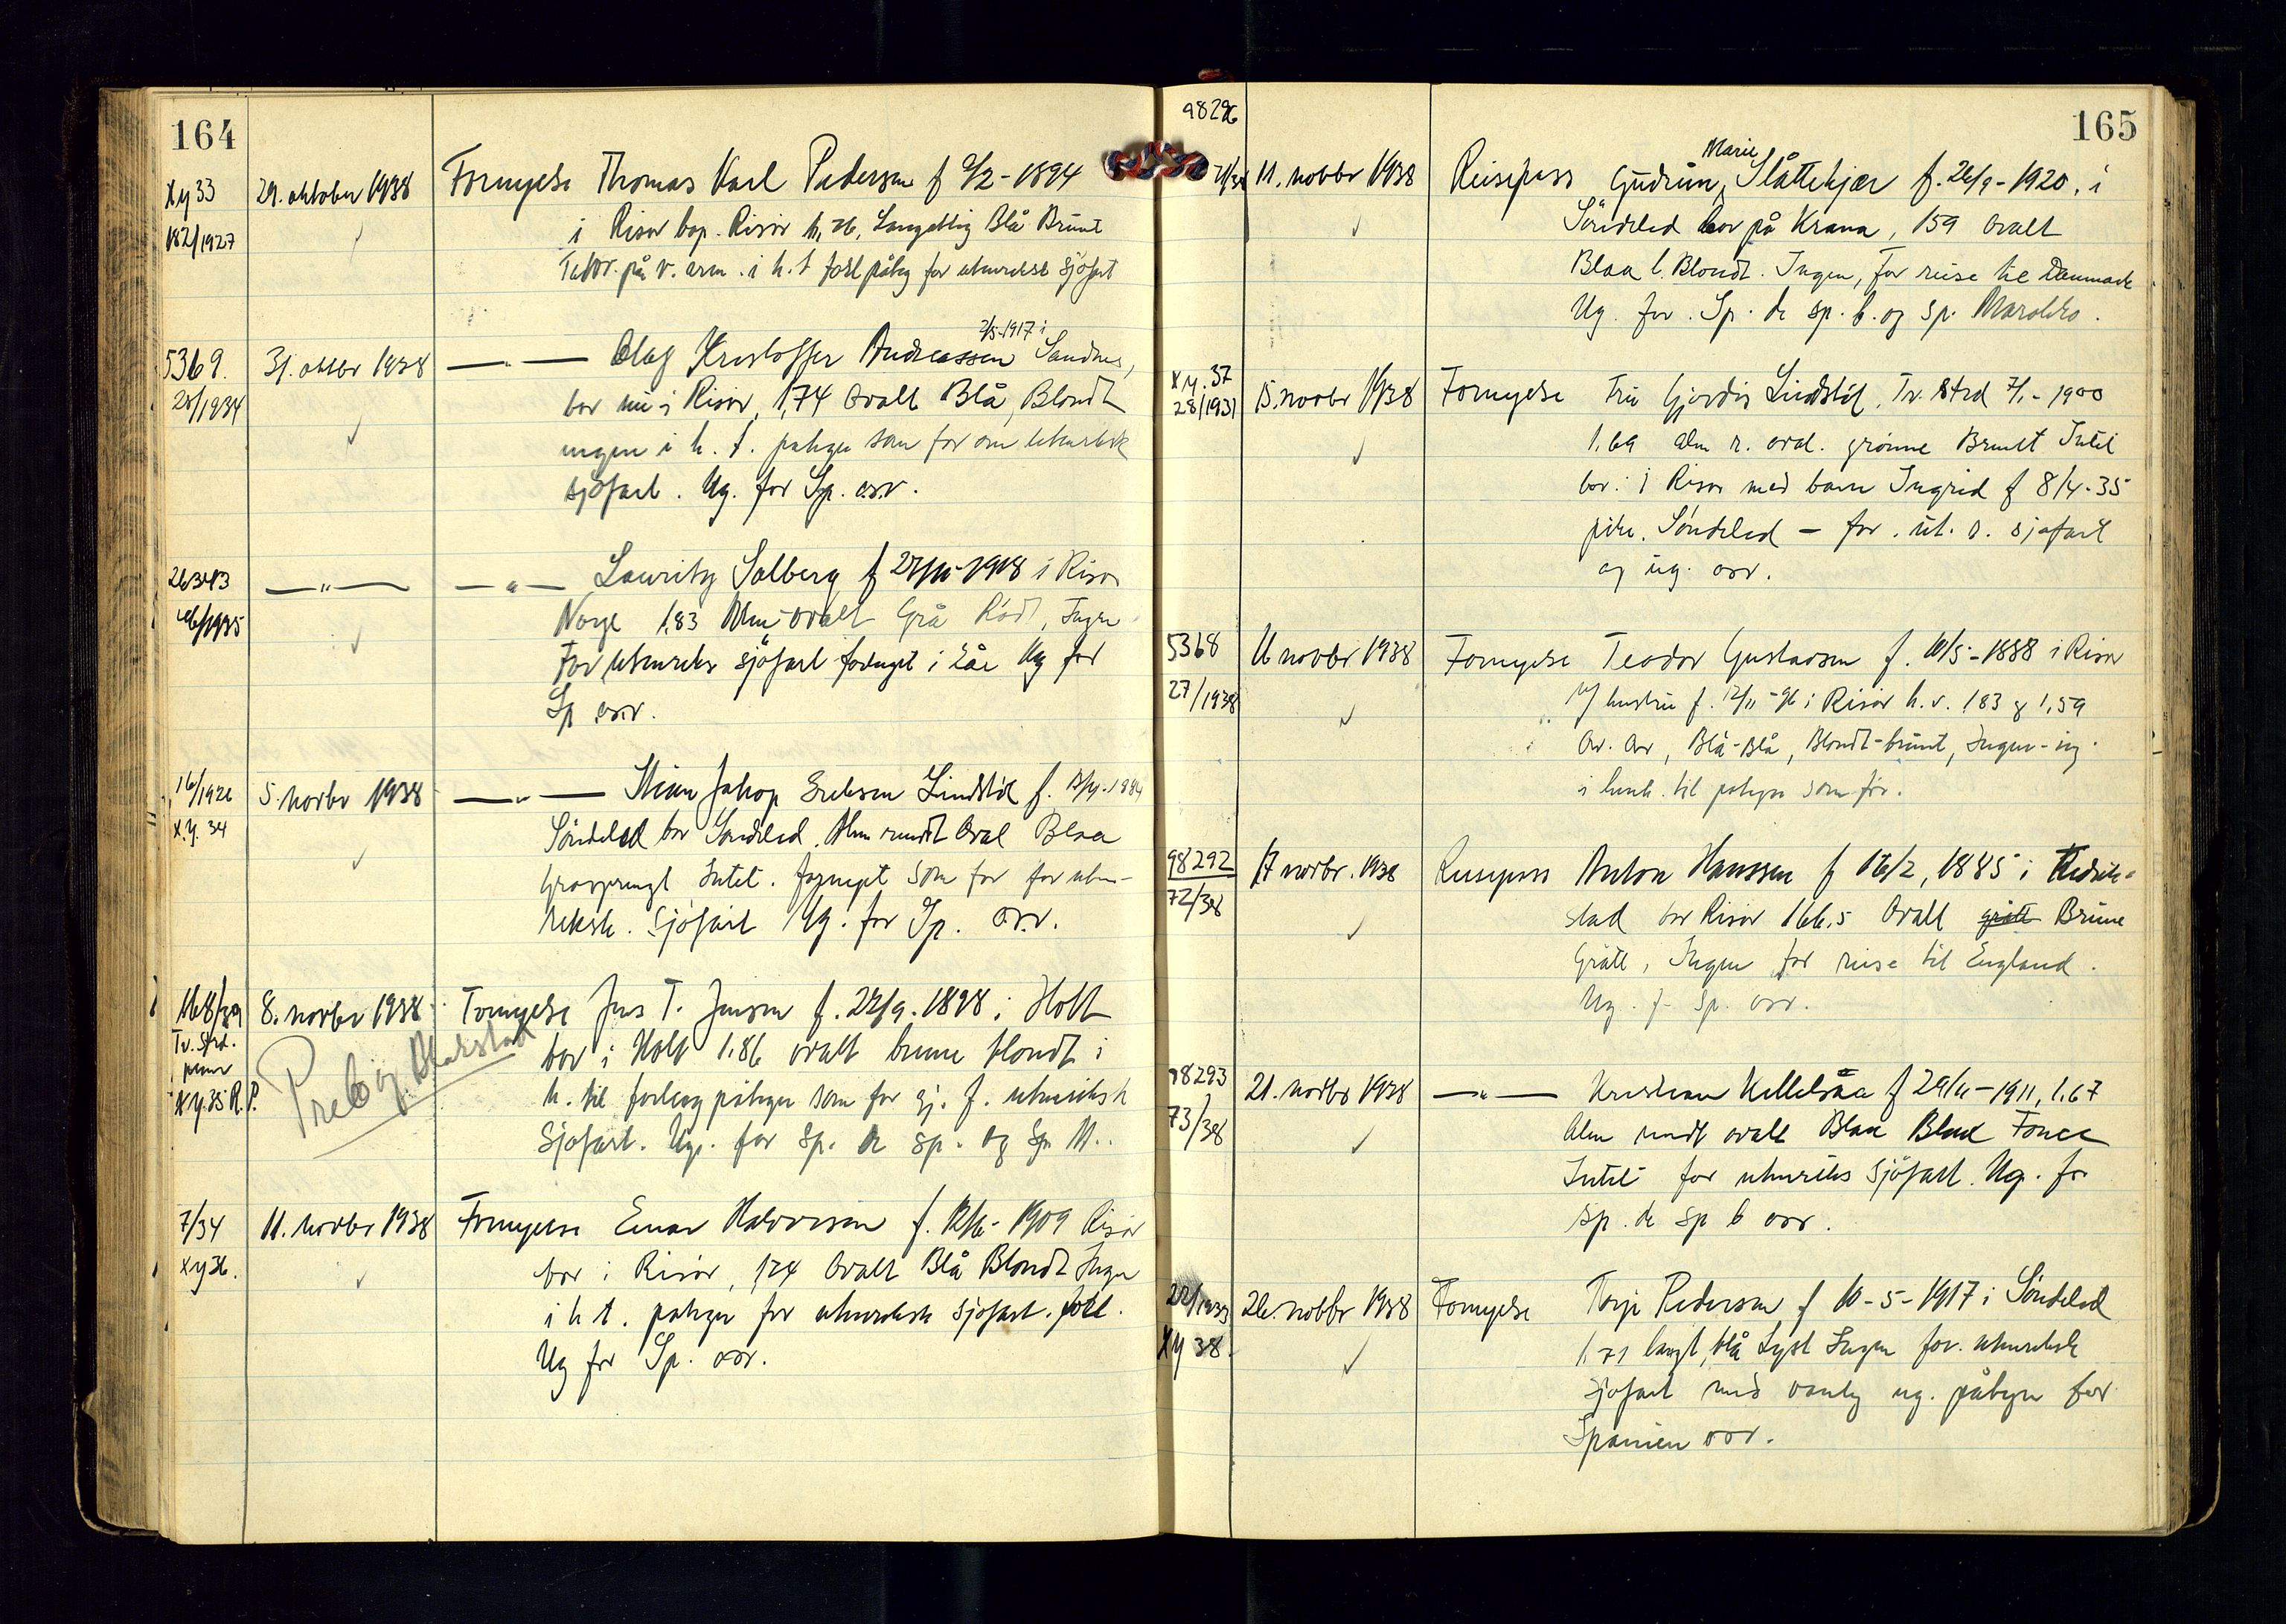 164
Xy 33
182/1927
29. oktober 1938
Fornyelse Thomas Karl Pedersen f /2-1894
i Risør bop. Risør h, Langaktig Blå Brunt
Tatov. på v. arm. i h. t for utenriks sjøfart
5369.
/1934
31. oktbr 1938
—„— Olaf Kristoffer Andreassen 2/5-1917 i Sandnes,
bor nu i Risør, 1,74 Ovalt Blå, Blondt
ingen i h. t. som før om utenriksk
sjøfart. Ug. for Sp. osv.
26343
/1935
—„—
—„— Lauritz Solberg f 1918 i Risør
Norge 1,83 Alm-ovalt Grå Rødt, Ingen
For utenriks sjøfart fornyet i 2 år Ug for
Sp osv.
16/1926
X.y. 34
5. novbr 1938
—„— Jakop Eriksen Lindstøl f.
Søndeled bor Søndeled. Alm rundt Oval Blaa
Graasprengt Intet. fornyet som før for uten-
riksk. Sjøfart Ug. for Sp. osv.
168/29
Tv. Strd.
Xy.35 R.P.
8. novbr 1938
Fornyelse Jens T. Jensen f. 22/9. 1898 i Holt
bor i Holt 1.86 ovalt brune blondt i
h. til som før gj. f. utenriksk
Sjøfart. Ug. for Sp. de sp. og Sp M..
Blakstad
7/34
Xy 36.
11. novbr 1938
Fornyelse Einar Halvorsen f. 12/6-1909 Risør
bor i Risør, 1,74 Ovalt Blå Blondt Ingen
i h t. for utenriksk sjøfart.
Ug for Sp. osv.
98296
71/38
11. novbr 1938
165
Reisepass Gudrun Marie Slåttekjær f. 26/9-1920. i
Søndeled bor på Krana, 159 Ovalt
Blaa l. Blondt. Ingen, for reise til Danmark
Ug. for. Sp. de sp. b. og sp. Marokko.
Xy. 37
28/1931
15. novbr 1938
Fornyelse Fru Hjørdis Lindstøl, Tv. Strd 7/1-1900
1.69 alm r. oval. grønne Brunt Intet
bor i Risør med barn Ingrid f 8/4-35
pike. Søndeled — for. ut. s. sjøfart
og ug. osv.
5368
27/1938
16 novbr 1938
Fornyelse Teodor Gustavsen f. 10/5-1888 i Risør
m/ hustru f. 12/11-96 i Risør h. v. 183 og 1,59
Ov. Ov, Blå-Blå, Blondt-brunt, Ingen-ing
i henh. til som før.
98292
72/38
17 novbr. 1938
Reisepass Anton Hanssen f 16/2, 1885 i Fredrik-
stad bor Risør 166.5 Ovalt grått Brune
Grått, Ingen for reise til England.
Ug. f. Sp. osv.
98293
73/38
21. novbr 1938
—„— Kristian Kellelsåa f 29/11-1911, 1.67
Alm rundt ovalt Blaa Blond
Intet for utenriks Sjøfart. Ug. for
Sp. de sp b osv.
22/1933
Xy 38.
26. novbr 1938
Fornyelse Terje Pedersen f 10-5-1917 i Søndeled
1.71 langt, blå Lyst Ingen for. utenriksk
sjøfart med vanlig ug. påtegn for
Spanien osv.